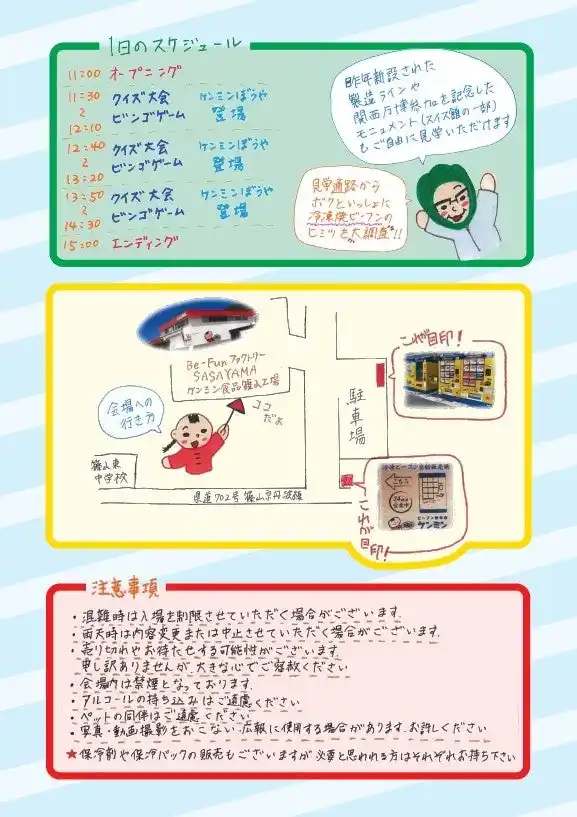 1日のスケジュール
11:00 オープニング
11:30 クイズ大会 ケンミンぼうや
〜 ビンゴゲーム 登場
12:10
12:40 クイズ大会 ケンミンぼうや
〜 ビンゴゲーム 登場
13:20
13:50 クイズ大会 ケンミンぼうや
〜 ビンゴゲーム 登場
14:30
15:00 エンディング
昨年新設された
製造ラインや
関西万博参加を記念した
モニュメント(スイス館の一部)
もご自由に見学いただけます
見学通路から
ボクといっしょに
冷凍焼ビーフンの
ヒミツを大調査!!
Be-Funファクトリー
SASAYAMA
ケンミン食品篠山工場
ココ
だよ
会場への
行き方
篠山東
中学校
県道702号 篠山京丹波線
駐車場
これが目印!
冷凍ビーフン自動販売機
こちら
24時間
営業中
ケンミン
これが目印!
注意事項
・混雑時は入場を制限させていただく場合がございます.
・雨天時は内容変更または中止させていただく場合がございます.
・売り切れやお待たせする可能性がございます.
申し訳ありませんが、大きな心でご容赦ください
・会場内は禁煙となっております.
・アルコールの持ち込みはご遠慮ください
・ペットの同伴はご遠慮ください
・写真・動画撮影をおこない広報に使用する場合があります.お許しください
★保冷剤や保冷バックの販売もございますが必要と思われる方はそれぞれお持ち下さい